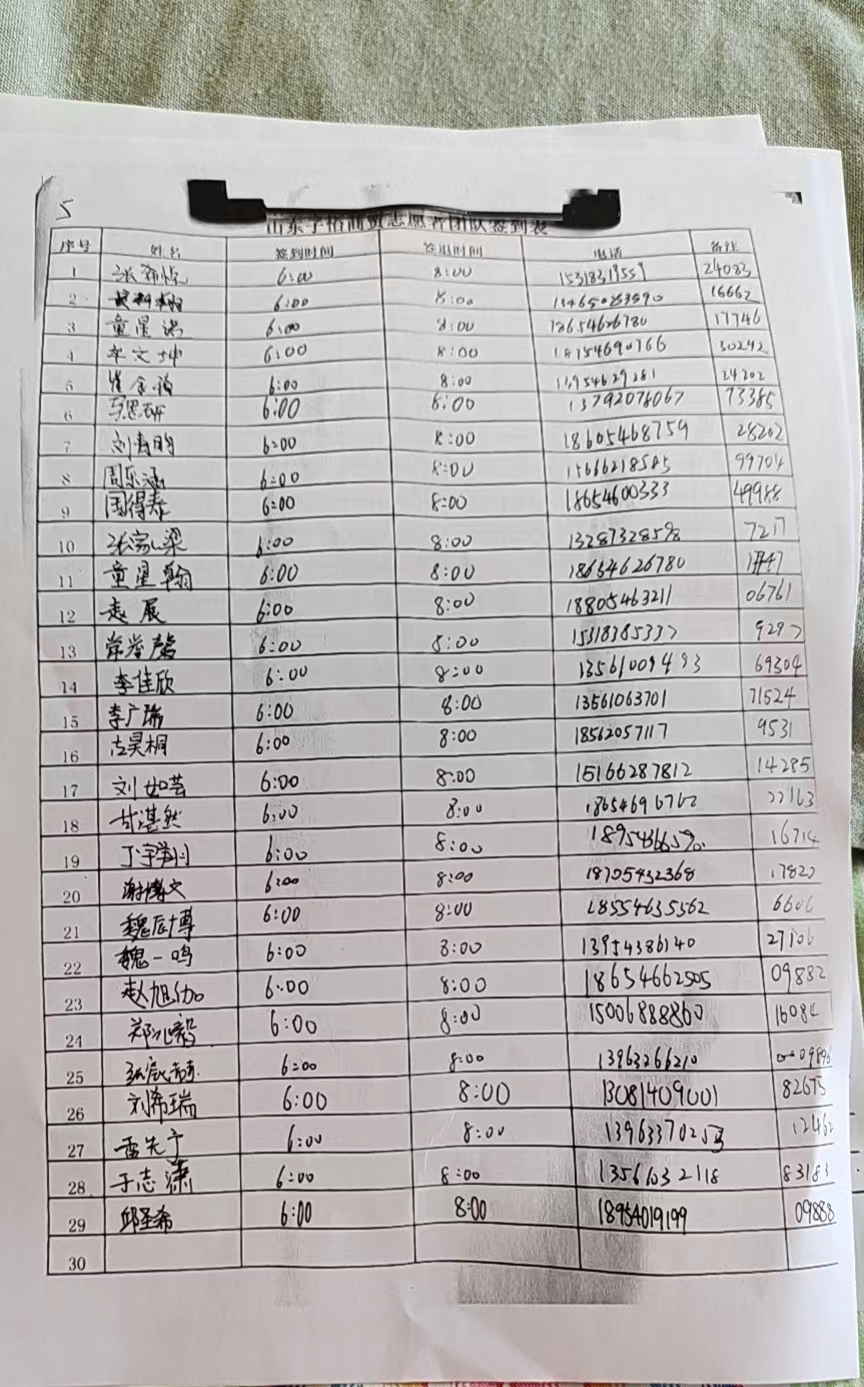 5
山东字梧商贸志愿者团队签到表
序号 姓名 签到时间 签退时间 电话 备注
1 6:00 8:00 15318319559 24083
2 6:00 8:00 16662
3 童星 6:00 8:00 17746
4 李文坤 6:00 8:00 18154690766 30242
5 6:00 8:00 13954629281 24202
6 马思研 6:00 8:00 13792078067 73385
7 刘 6:00 8:00 18605468759 28202
8 周乐涵 6:00 8:00 15666218585 99704
9 国得寿 6:00 8:00 18654600333 49988
10 张家梁 6:00 8:00 13287328598 7217
11 童星翰 6:00 8:00 18654626780
12 袁展 6:00 8:00 18805463211 06761
13 6:00 8:00 15318385337 9297
14 李佳欣 6:00 8:00 13561009493 69304
15 李广瑞 6:00 8:00 13561063701 71524
16 昊桐 6:00 8:00 18562057117 9531
17 刘如芸 6:00 8:00 15166287812 14285
18 甘湛然 6:00 8:00 18654696762 22163
19 丁宇 6:00 8:00 16714
20 谢博文 6:00 8:00 18705432368 17820
21 魏辰博 6:00 8:00 18554635562 6606
22 魏一鸣 6:00 8:00 13954386140 27106
23 赵旭 6:00 8:00 18654662505 09882
24 郑 毅 6:00 8:00 15006888860 16084
25 张 6:00 8:00 13963266210 09896
26 刘希瑞 6:00 8:00 13081409001 82675
27 雷先宁 6:00 8:00 12462
28 于志潇 6:00 8:00 13561032118 83181
29 邱圣希 6:00 8:00 18954019199 09888
30